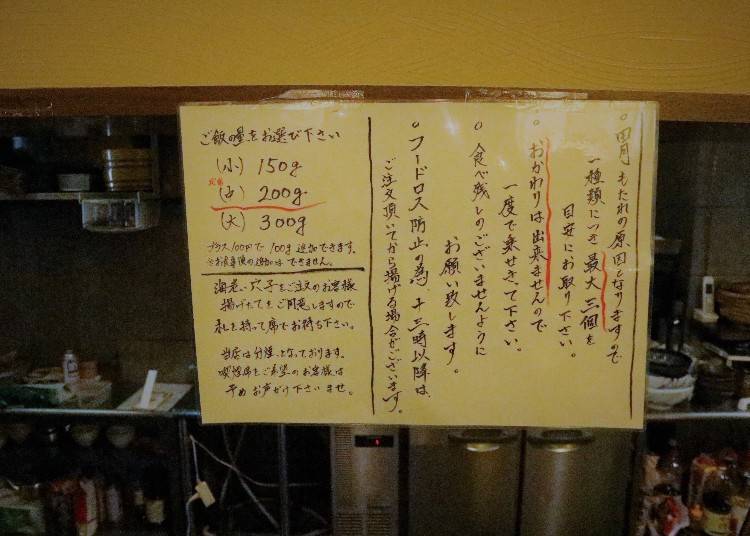 ○胃もたれの原因となりますので
一種類につき最大三個を
目安にお取り下さい。
○おかわりは出来ませんので
一度で乗せきって下さい。
○食べ残しのございませんように
お願い致します。
○フードロス防止の為、十三時以降は、
ご注文頂いてから揚げる場合がございます。
ご飯の量をお選び下さい
(小) 150g
(中) 200g
(大) 300g
プラス100円で100g追加できます。
※お食事後の追加はできません。
海老、穴子をご注文のお客様
揚げたてをご用意しますので
札を持って席でお待ち下さい。
当店は分煙となっております。
喫煙席をご希望のお客様は
予めお声がけ下さいませ。